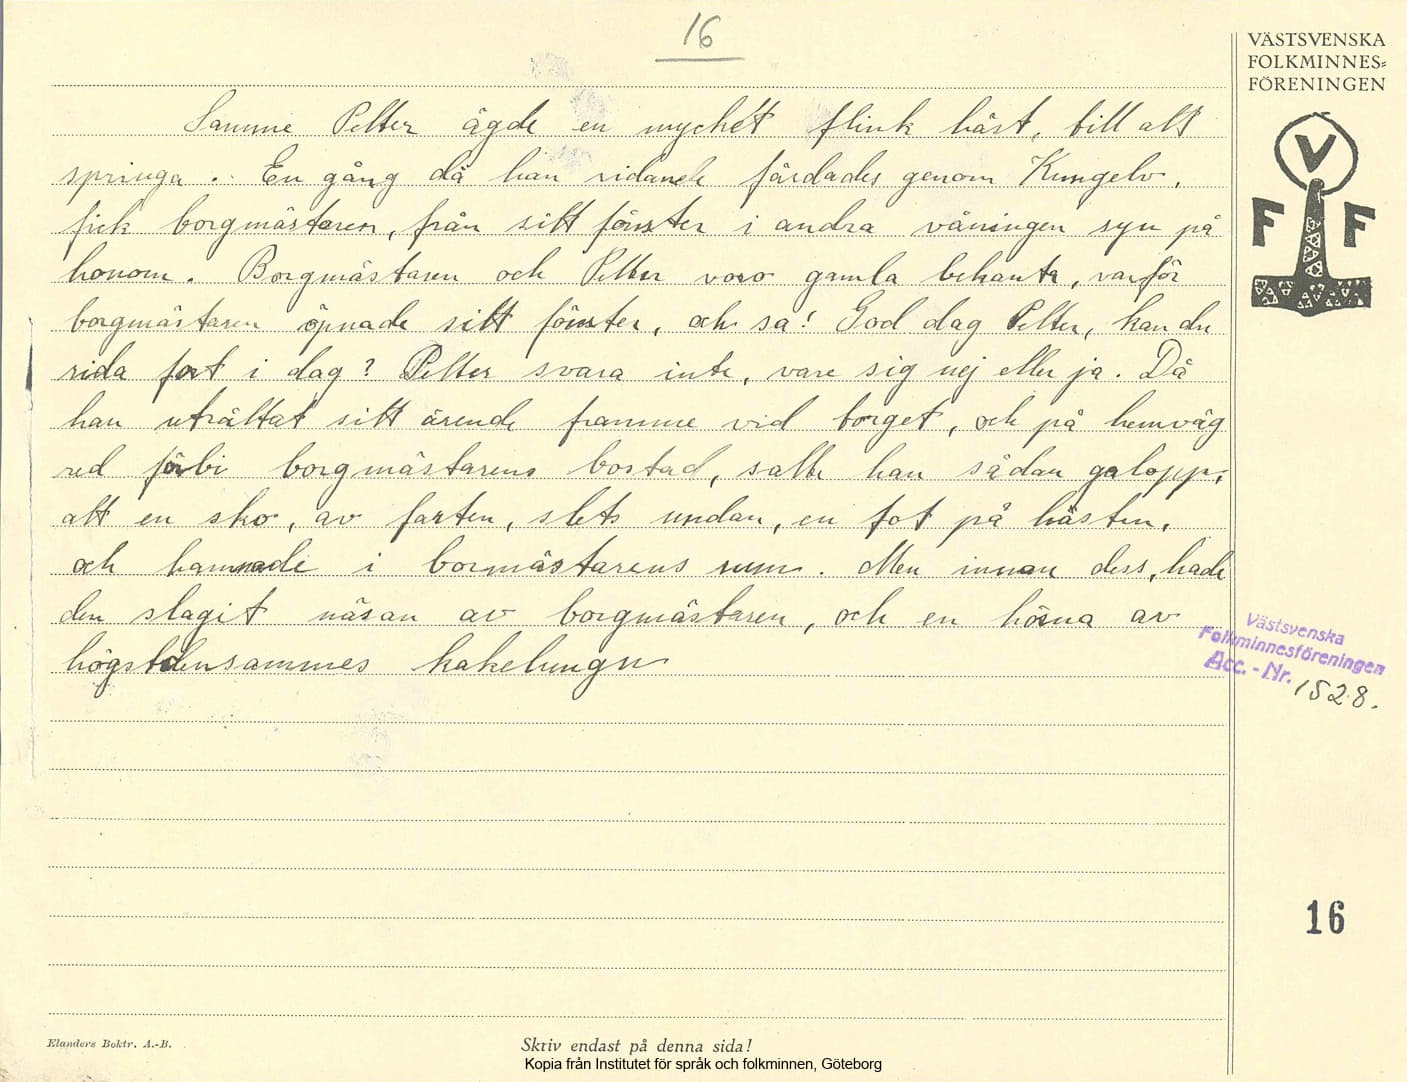 16
VÄSTSVENSKA
FOLKMINNES=
FÖRENINGEN
V
F F
Samme Petter ägde en mycket flink häst, till att
springa. En gång då han ridande färdades genom Kungelv,
fick borgmästaren, från sitt fönster i andra våningen syn på
honom. Borgmästaren och Petter voro gamla bekanta, varför
borgmästaren öpnade sitt fönster, och sa! God dag Petter, kan du
rida fort i dag? Petter svara inte, vare sig nej eller ja. Då
han uträttat sitt ärende framme vid torget, och på hemväg
red förbi borgmästarens bostad, satte han sådan galopp,
att en sko, av farten, slets undan, en fot på hästen,
och hamnade i bormästarens rum. Men innan dess, hade
den slagit näsan av borgmästaren, och en hörna av
högstdensammes kakelungn
Västsvenska
Folkminnesföreningen
Acc.-Nr. 1528.
16
Elanders Boktr. A.-B.
Skriv endast på denna sida!
Kopia från Institutet för språk och folkminnen, Göteborg